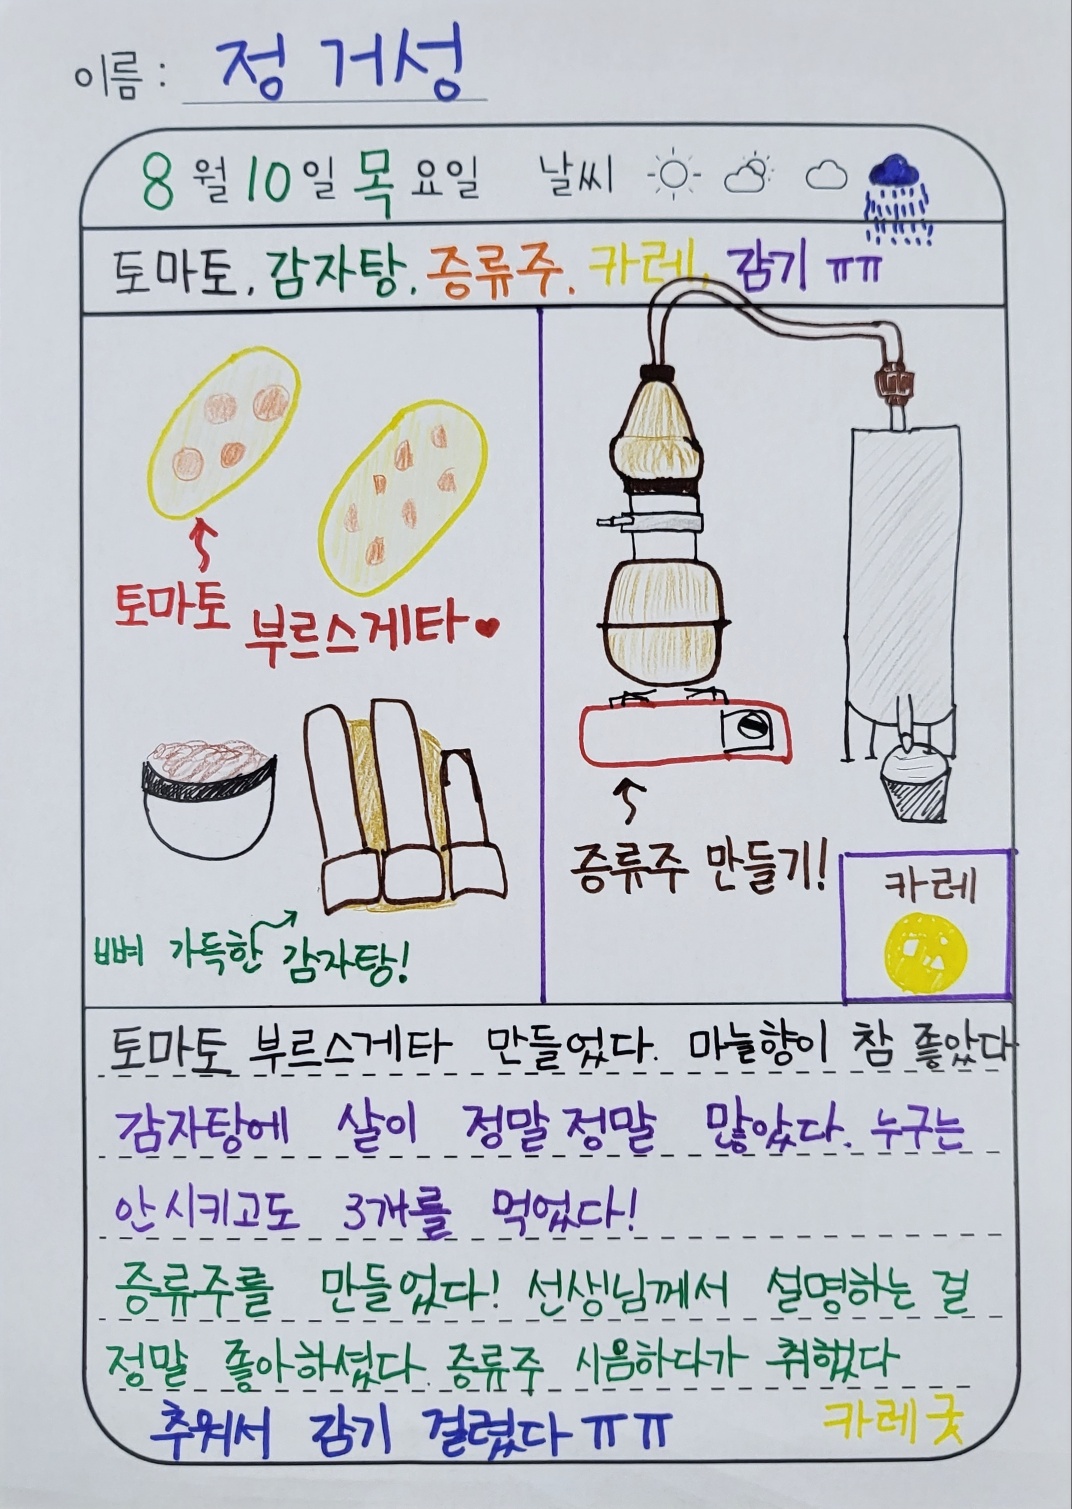 이름 : 정 거성
8 월 10 일 목 요일 날씨
토마토, 감자탕, 증류주, 카레, 감기 ㅠㅠ
토마토 부르스게타
뼈 가득한 감자탕!
증류주 만들기!
카레
토마토 부르스게타 만들었다. 마늘향이 참 좋았다
감자탕에 살이 정말 정말 많았다. 누구는
안 시키고도 3개를 먹었다!
증류주를 만들었다! 선생님께서 설명하는 걸
정말 좋아하셨다. 증류주 시음하다가 취했다
추워서 감기 걸렸다 ㅠㅠ 카레 굿